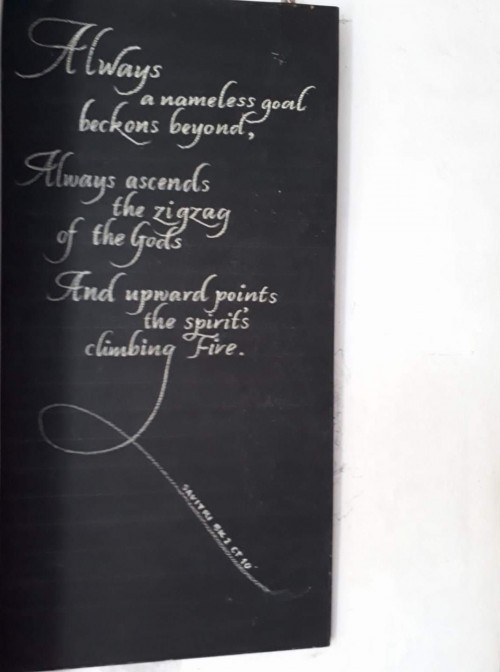 Always
a nameless goal
beckons beyond,
Always ascends
the zigzag
of the Gods
And upward points
the spirit's
climbing Fire.
SAVITRI BK 2 CT 10